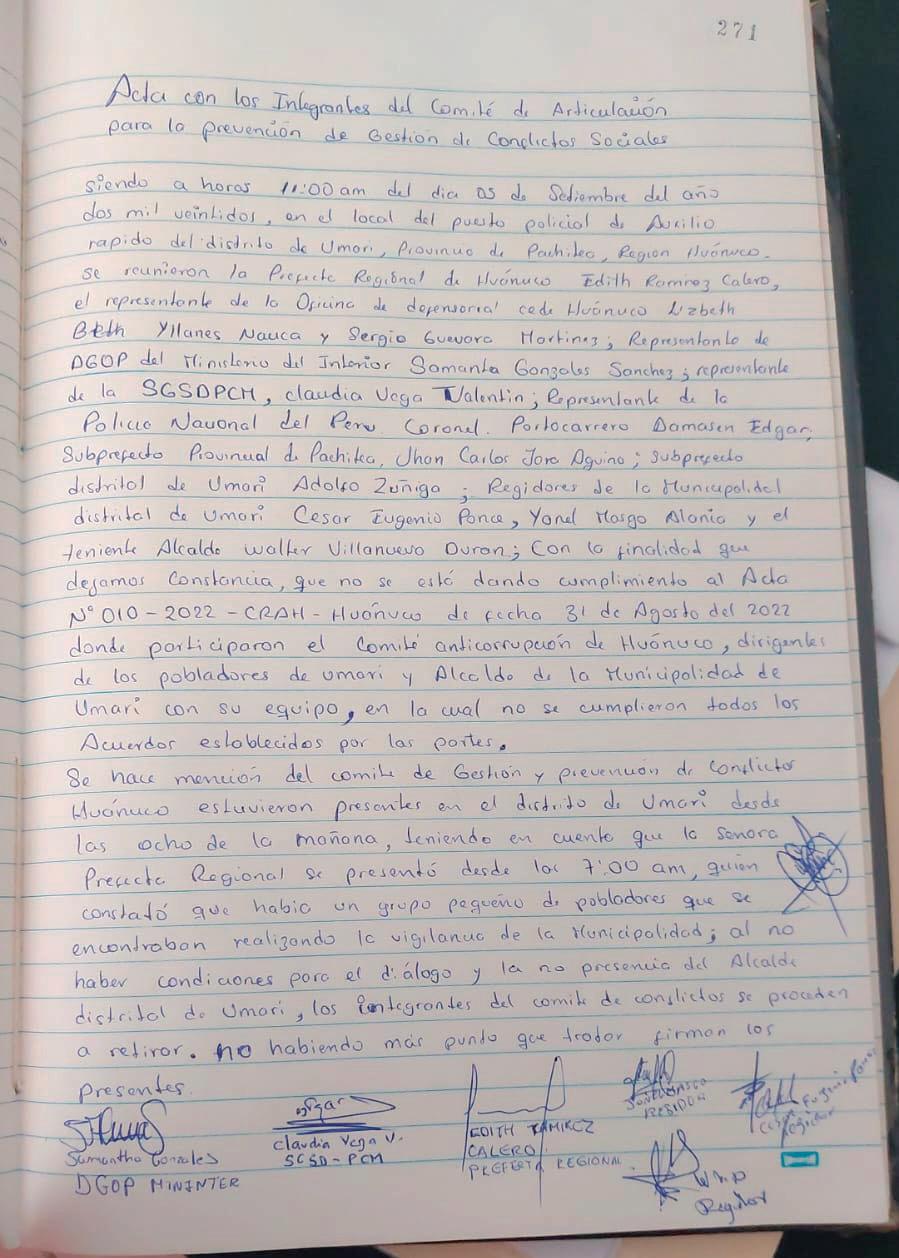 271
Acta con los Integrantes del Comité de Articulación
para la prevención de Gestión de Conflictos Sociales
siendo a horas 11:00 am del dia 05 de Setiembre del año
dos mil veintidos, en el local del puesto policial de Auxilio
rapido del distrito de Umari, Provincia de Pachitea, Region Huánuco.
se reunieron la Prefecta Regional de Huánuco Edith Ramirez Calero,
el representante de la Oficina de defensorial cede Huánuco Lizbeth
Beth Yllanes Nauca y Sergio Guevara Martinez; Representante de
DGOP del Ministerio del Interior Samanta Gonzales Sanchez; representante
de la SGSDPCM, claudia Vega Valentin; Representante de la
Policia Nacional del Peru Coronel. Portocarrero Damasen Edgar,
Subprefecto Provincial de Pachitea, Jhon Carlos Jara Aquino; subprefecto
distrital de Umari Adolfo Zuñiga; Regidores de la Municipalidad
distrital de Umari Cesar Eugenio Ponce, Yonel Masgo Alania y el
teniente Alcalde Walter Villanueva Duran; Con la finalidad que
dejamos Constancia, que no se está dando cumplimiento al Acta
N° 010-2022-CRAH-Huánuco de fecha 31 de Agosto del 2022
donde participaron el Comité anticorrupción de Huánuco, dirigentes
de los pobladores de umari y Alcalde de la Municipalidad de
Umari con su equipo, en la cual no se cumplieron todos los
Acuerdos establecidos por las partes.
Se hace mención del comite de Gestión y prevención de Conflictos
Huánuco estuvieron presentes en el distrito de Umari desde
las ocho de la mañana, teniendo en cuenta que la señora
Prefecta Regional se presentó desde las 7:00 am, quien
constató que habia un grupo pequeño de pobladores que se
encontraban realizando la vigilancia de la Municipalidad; al no
haber condiciones para el diálogo y la no presencia del Alcalde
distrital de Umari, los integrantes del comite de conflictos se proceden
a retirar. no habiendo más punto que tratar firman los
presentes.
Samantha Gonzales
DGOP MININTER
Claudia Vega V.
SCSD-PCM
EDITH RAMIREZ
CALERO
PREFECTA REGIONAL.
YONEL MASGO
REGIDOR
Cesar Eugenio Ponce
Regidor
Regidor